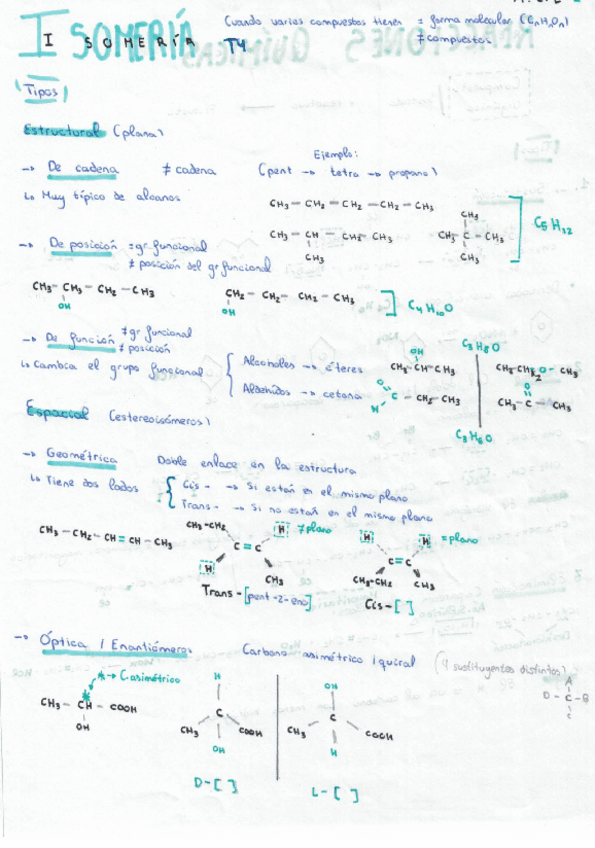 ISOMERÍA
I SOMERÍA T4
Cuando varios compuestos tienen = forma molecular (CnHnOn)
≠ compuestos
Tipos
Estructural (plana)
→ De cadena ≠ cadena
↳ Muy típico de alcanos
Ejemplo:
(pent → tetra → propano)
CH3 - CH2 - CH2 - CH2 - CH3
CH3 - CH - CH2 - CH3
CH3
CH3
CH3 - C - CH3
CH3
C5H12
→ De posición = gr funcional
≠ posición del gr funcional
CH3 - CH3 - CH2 - CH3
OH
CH2 - CH2 - CH2 - CH3
OH
C4H10O
→ De función ≠ gr funcional
≠ posición
↳ Cambia el grupo funcional
Alcoholes → éteres
Aldehídos → cetona
C3H8O
OH
CH3-CH-CH3
CH3-CH2-O-CH3
O
H
C-CH2-CH3
O
CH3-C-CH3
C3H6O
Espacial (estereoisómeros)
→ Geométrica Doble enlace en la estructura
↳ Tiene dos lados
Cis- → Si están en el mismo plano
Trans- → Si no están en el mismo plano
CH3 - CH2 - CH = CH - CH3
CH3-CH2
H ≠ plano
C = C
H
CH3
Trans-[pent-2-eno]
H
H = plano
C = C
CH3-CH2
CH3
Cis-[ ]
→ Óptica / Enantiómeros Carbono asimétrico / quiral (4 sustituyentes distintos)
* → C asimétrico
CH3 - CH - COOH
OH
H
C
CH3
COOH
OH
D-[ ]
OH
C
CH3
COOH
H
L-[ ]
A
D - C - B
C